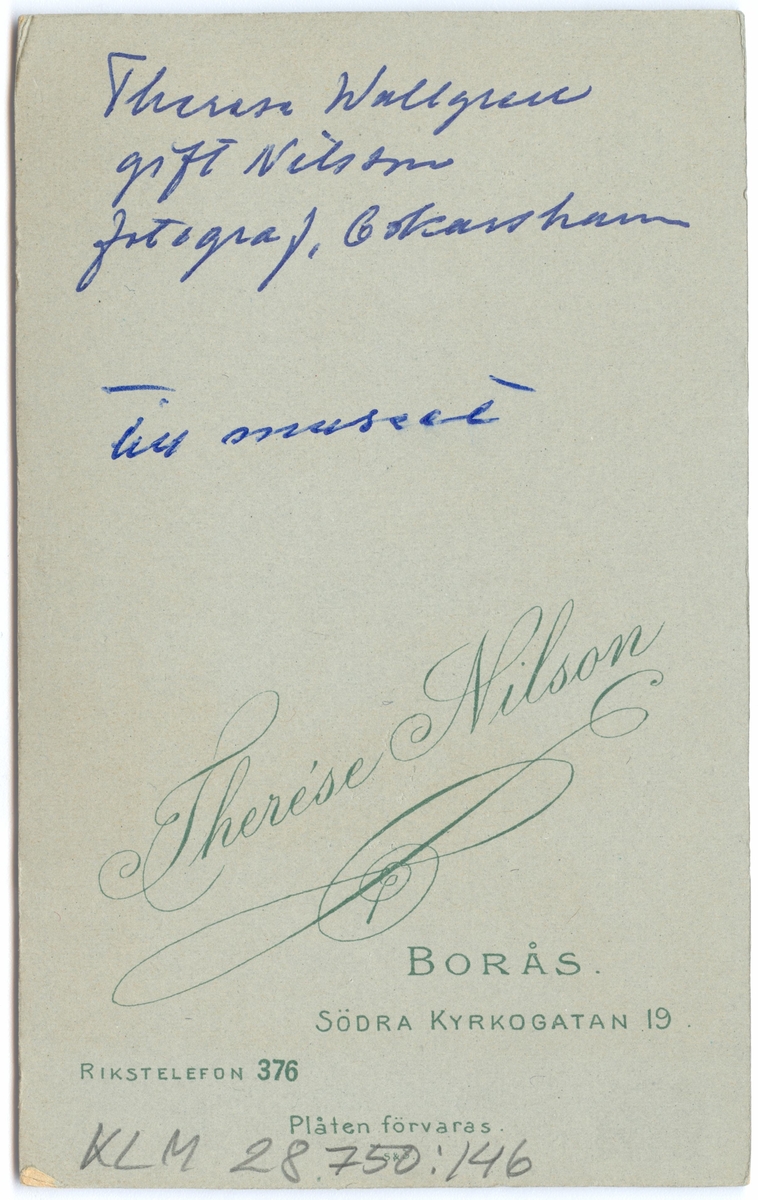 Therese Wallgren
gift Nilsson
fotograf, Oskarshamn
Till museet
Therése Nilson
BORÅS.
SÖDRA KYRKOGATAN 19.
RIKSTELEFON 376
Plåten förvaras.
KLM 28.750:146